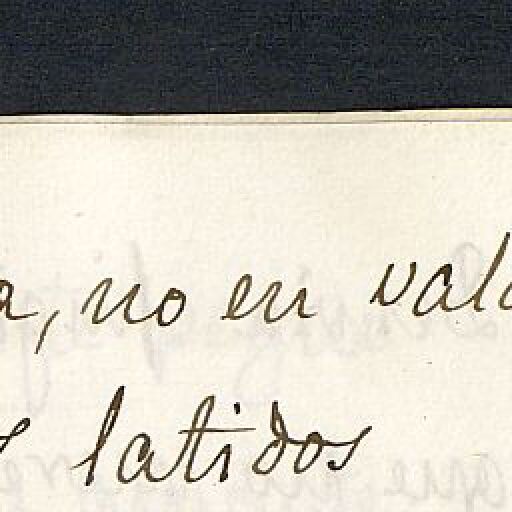 a, no en vald
s latidos